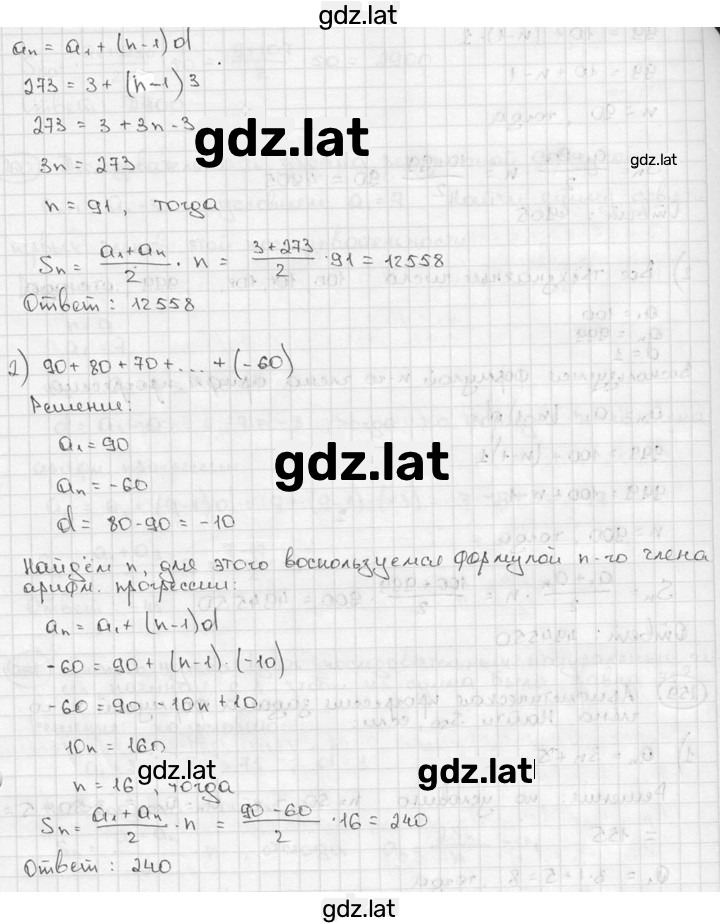 gdz.lat
aₙ = a₁ + (n-1)d
273 = 3 + (n-1)3
273 = 3 + 3n - 3
gdz.lat
3n = 273
gdz.lat
n = 91, тогда
Sₙ = (a₁+aₙ)/2 · n = (3+273)/2 · 91 = 12558
Ответ: 12558
2) 90 + 80 + 70 + ... + (-60)
Решение:
a₁ = 90
gdz.lat
aₙ = -60
d = 80-90 = -10
Найдём n, для этого воспользуемся формулой n-го члена
арифм. прогрессии:
aₙ = a₁ + (n-1)d
-60 = 90 + (n-1)·(-10)
-60 = 90 - 10n + 10
10n = 160
gdz.lat gdz.lat
n = 16, тогда
Sₙ = (a₁+aₙ)/2 · n = (90-60)/2 · 16 = 240
Ответ: 240
gdz.lat